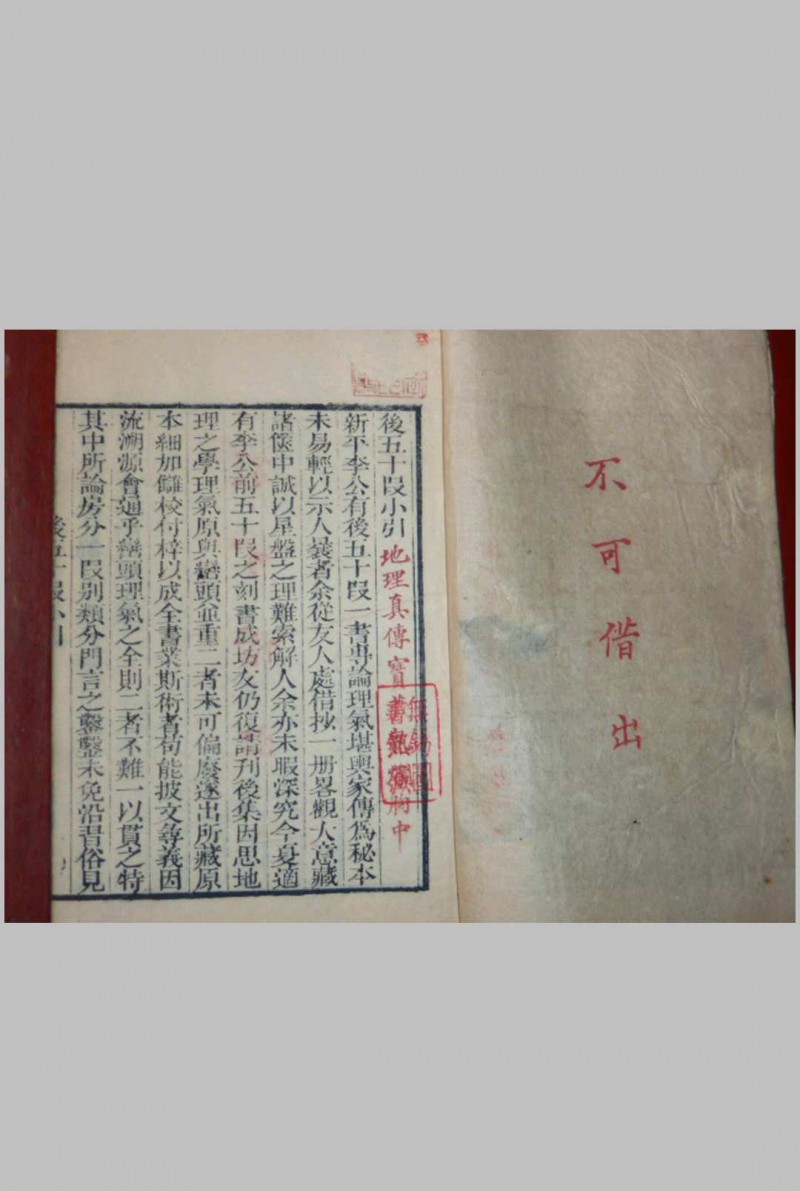 不可借出
後五十叚小引
地理真傳寶
中
新平李公有後五十叚一書專論理氣堪輿家傳爲秘本
未易輕以示人曩者余從友人處借抄一册畧觀大意藏
諸篋中誠以星盤之理難索解人余亦未暇深究今夏適
有李公前五十叚之刻書成坊友仍復請刊後集因思地
理之學理氣原與巒頭並重二者未可偏廢遂出所藏原
本細加讎校付梓以成全書業斯術者苟能披文尋義因
流溯源會通乎巒頭理氣之全則二者不難一以貫之特
其中所論房分一叚別類分門言之鑿鑿未免沿習俗見
後五十叚小引